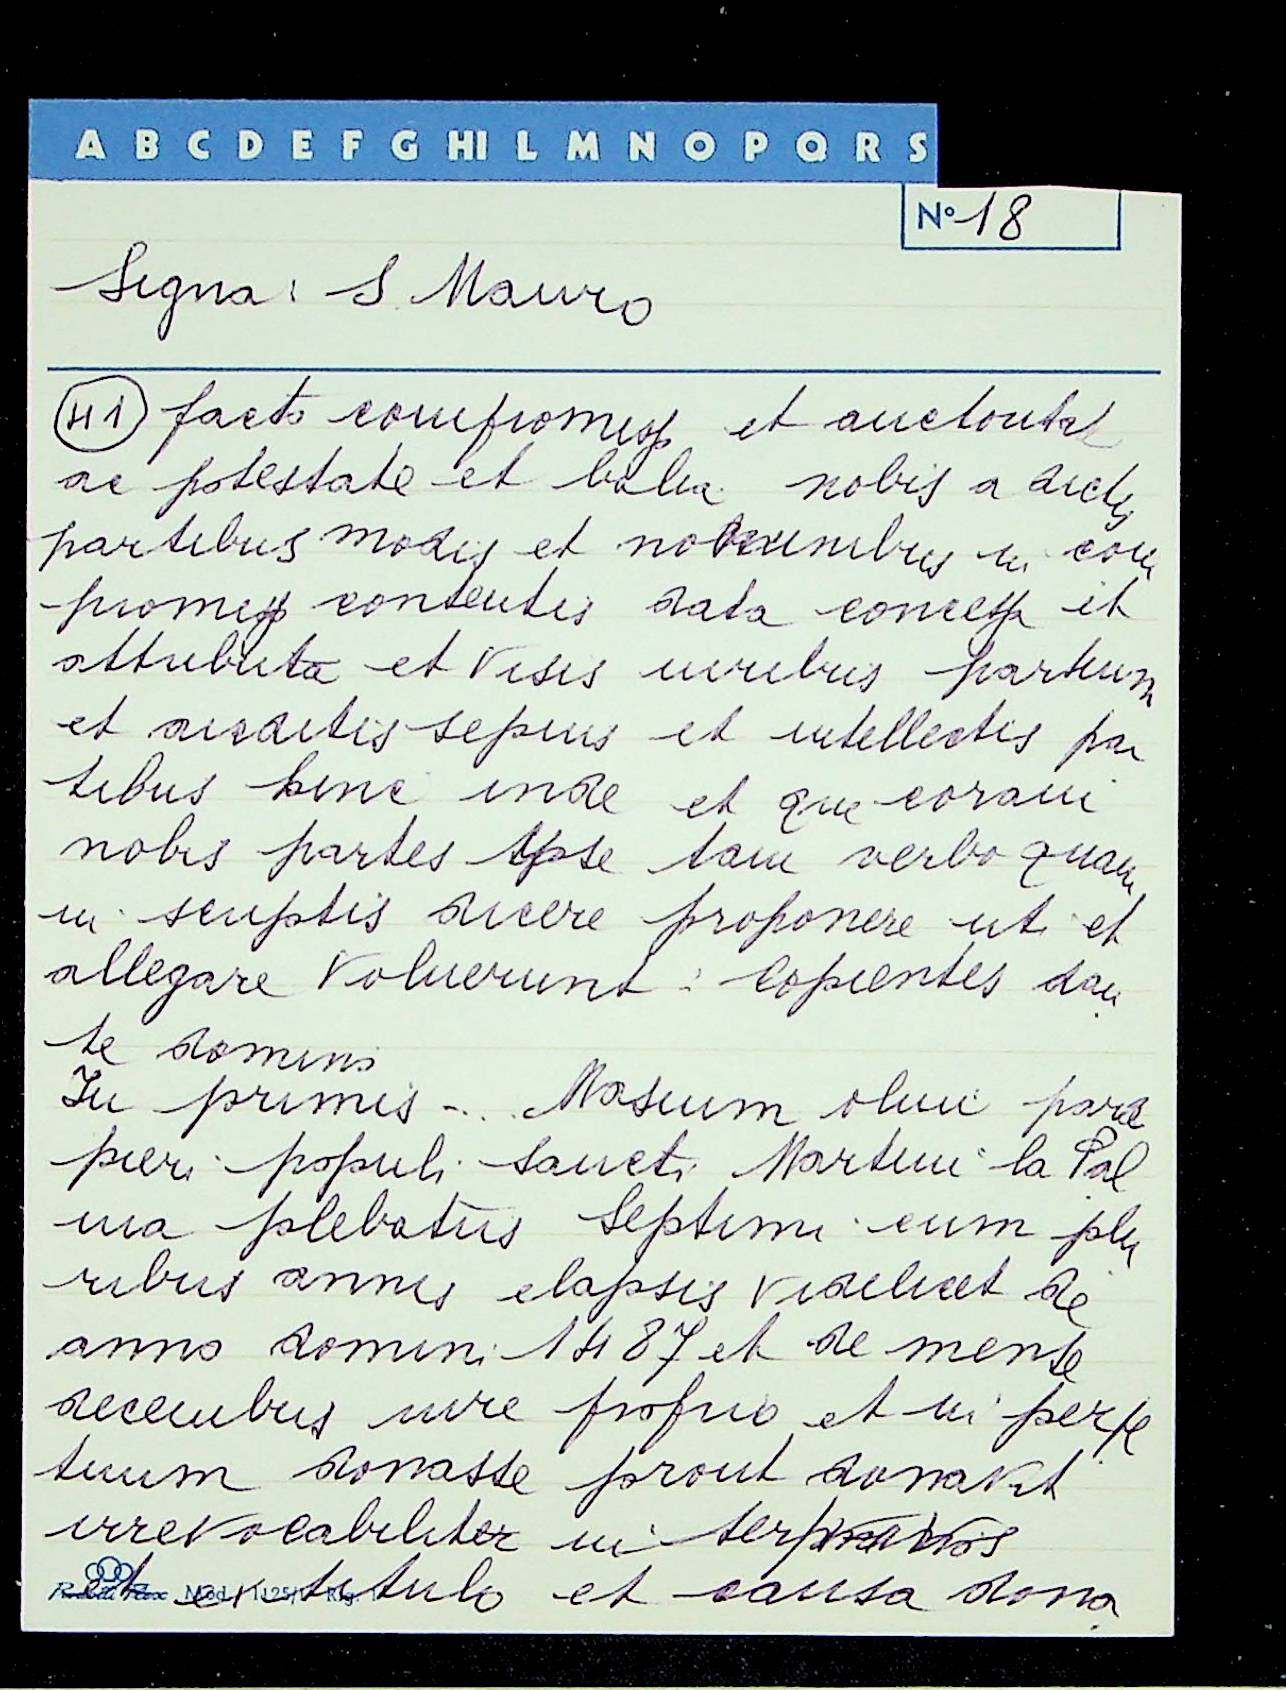 A B C D E F G HI L M N O P Q R S
N° 18
Signa: S. Mauro
41 facto compromisso et auctoritate
ac potestate et balia nobis a dictis
partibus modis et nominibus in com
promisso contentis data concessa et
attributa et visis iuribus partium
et auditis sepius et intellectis par
tibus hinc inde et que coram
nobis partes ipse tam verbo quam
in scriptis dicere proponere uti et
allegare voluerunt: Copientes dan
te domino
In primis -... Masium olim
pieri populi sancti Martini la Pal
ma plebatus Septimi cum plu
ribus annis elapsis videlicet de
anno domini 1487 et de mense
decembris iure proprio et in perpe
tuum donasse prout donavit
irrevocabiliter in
et ex titulo et causa dona
Mod. 1125/ Rig. 1